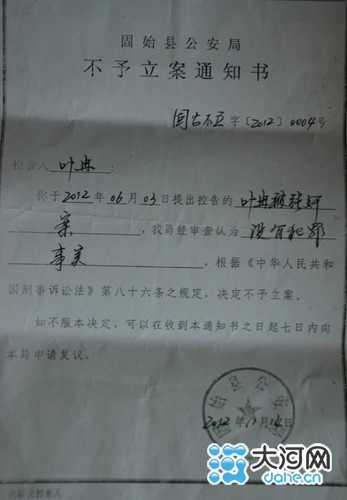 固始县公安局
不予立案通知书
固公不立字〔2012〕0004号
控告人叶冉：
你于2012年06月03日提出控告的叶冉被强奸
案，我局经审查认为没有犯罪
事实，根据《中华人民共和
国刑事诉讼法》第八十六条之规定，决定不予立案。
如不服本决定，可以在收到本通知书之日起七日内向
本局申请复议。
固始县公安局
2012年11月14日
此联交控告人
大河网
www.dahe.cn